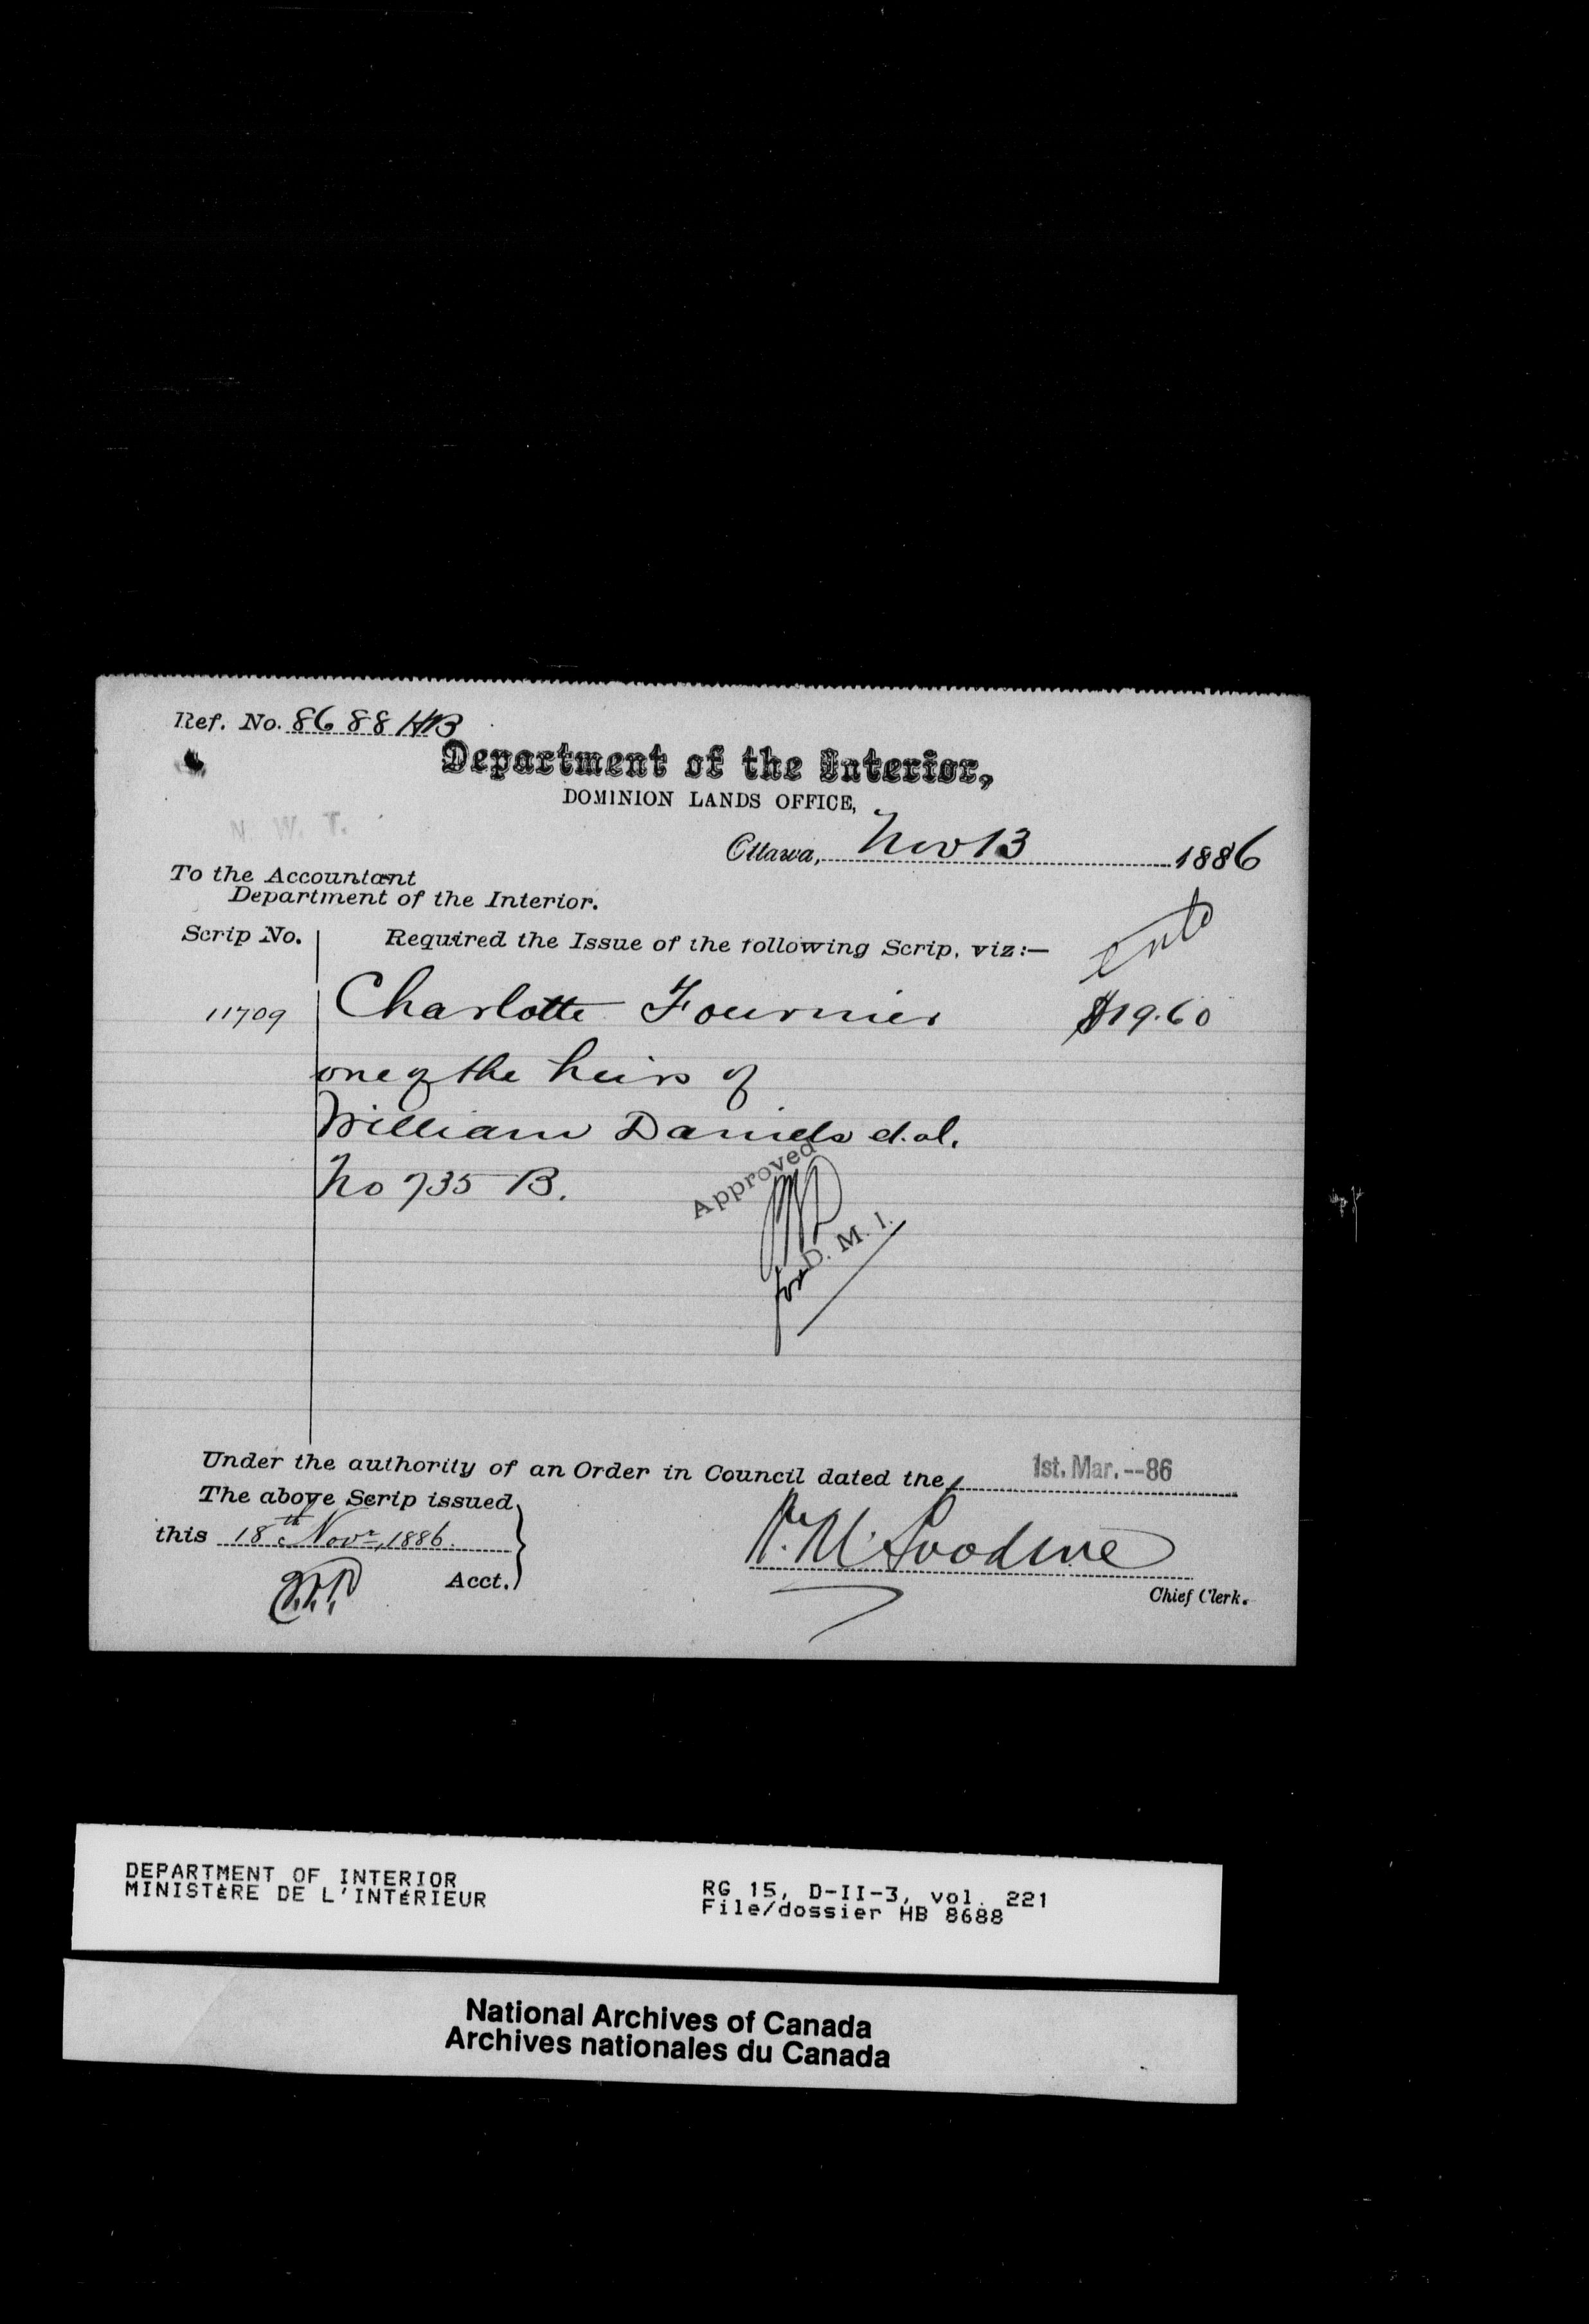 Ref. No. 8688 HB
Department of the Interior,
DOMINION LANDS OFFICE,
N. W. T.
Ottawa, Nov 13 1886
To the Accountant
Department of the Interior.
Scrip No. Required the Issue of the following Scrip, viz:—
11709 Charlotte Fournier $19.60
one of the heirs of
William Daniels
No 735 B.
Approved
for D. M. I.
Under the authority of an Order in Council dated the 1st. Mar.--86
The above Scrip issued
this 18th Novr, 1886.
Acct.
Chief Clerk.
DEPARTMENT OF INTERIOR
MINISTÈRE DE L'INTÉRIEUR
RG 15, D-II-3, vol. 221
File/dossier HB 8688
National Archives of Canada
Archives nationales du Canada